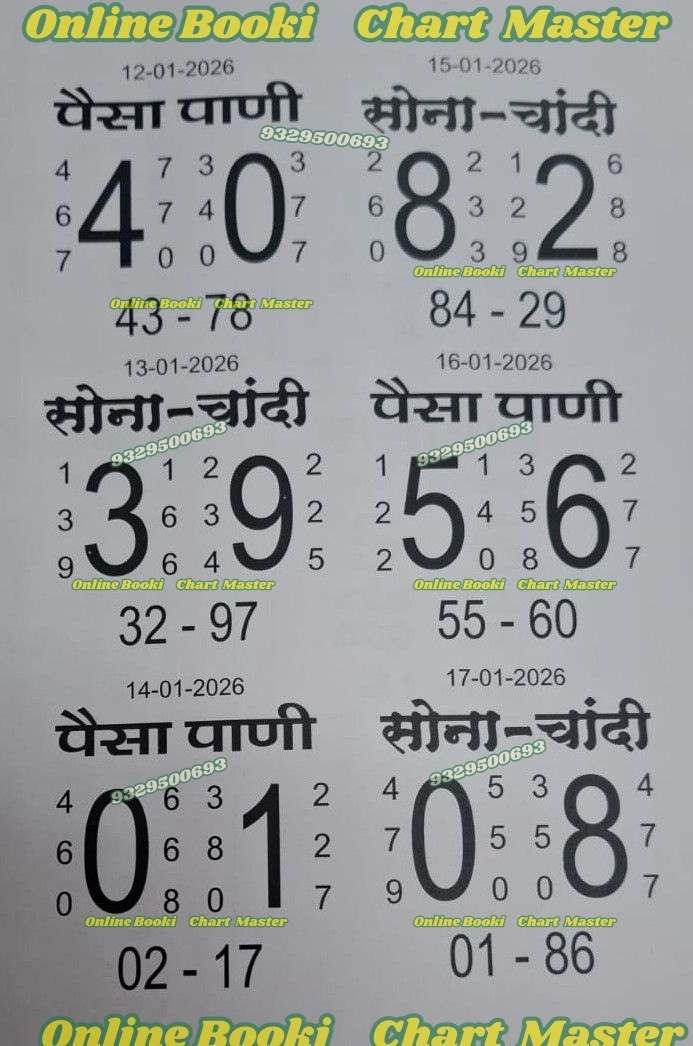 Online Booki Chart Master
12-01-2026
पैसा पाणी
9329500693
4 7 3 3
6 4 7 4 0 7
7 0 0 7
Online Booki Chart Master
43 - 78
13-01-2026
सोना-चांदी
9329500693
1 1 2 2
3 3 6 3 9 2
9 6 4 5
Online Booki Chart Master
32 - 97
14-01-2026
पैसा पाणी
9329500693
4 6 3 2
6 0 6 8 1 2
0 8 0 7
Online Booki Chart Master
02 - 17
15-01-2026
सोना-चांदी
2 2 1 6
6 8 3 2 2 8
0 3 9 8
Online Booki Chart Master
84 - 29
16-01-2026
पैसा पाणी
9329500693
1 1 3 2
2 5 4 5 6 7
2 0 8 7
Online Booki Chart Master
55 - 60
17-01-2026
सोना-चांदी
9329500693
4 5 3 4
7 0 5 5 8 7
9 0 0 7
Online Booki Chart Master
01 - 86
Online Booki Chart Master